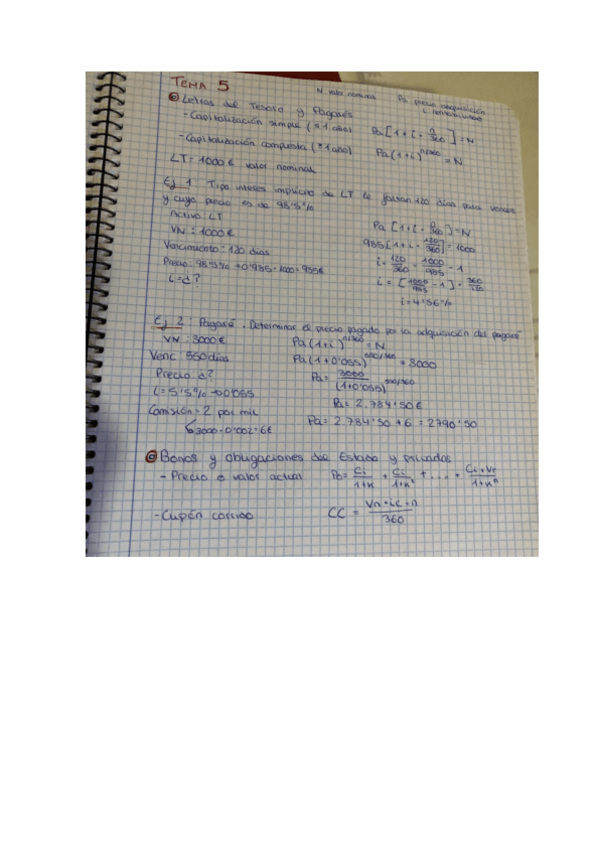 TEMA 5
N valor nominal   Pa precio adquisición
i rentabilidad
Letras del Tesoro y Pagarés
- Capitalización simple (≤ 1 año)   Pa [1 + i · n/360] = N
- Capitalización compuesta (>1 año)   Pa (1+i)^n/360 = N
LT = 1000 € valor nominal
Ej 1: Tipo interes implícito de LT le faltan 120 días para vencer
y cuyo precio es de 98'5%
Activo: LT   Pa [1 + i · n/360] = N
VN = 1000 €   985 [1 + i · 120/360] = 1000
Vencimiento = 120 días   i · 120/360 = 1000/985 - 1
Precio: 98'5% → 0'985 · 1000 = 985€   i = [1000/985 - 1] · 360/120
i = ¿?   i = 4'56%
Ej 2: Pagaré. Determinar el precio pagado por la adquisición del pagaré
VN: 3000 €   Pa (1+i)^n/360 = N
Venc: 550 días   Pa (1+0'055)^550/360 = 3000
Precio: ¿?   Pa = 3000/(1+0'055)^550/360
i = 5'5% → 0'055   Pa = 2.784'50 €
Comisión = 2 por mil   Pa = 2.784'50 + 6 = 2790'50
3000 · 0'002 = 6€
Bonos y obligaciones del Estado y privadas
- Precio o valor actual   Po = Ci/1+k + Ci/1+k² + ... + Ci+Vr/1+kⁿ
- Cupón corrido   CC = Vn · ic · n/360